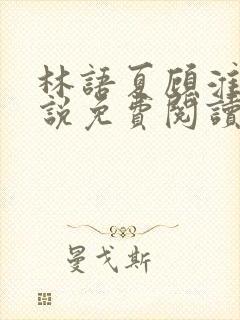 林語夏顾淮
說免費閱讀
曼戈斯